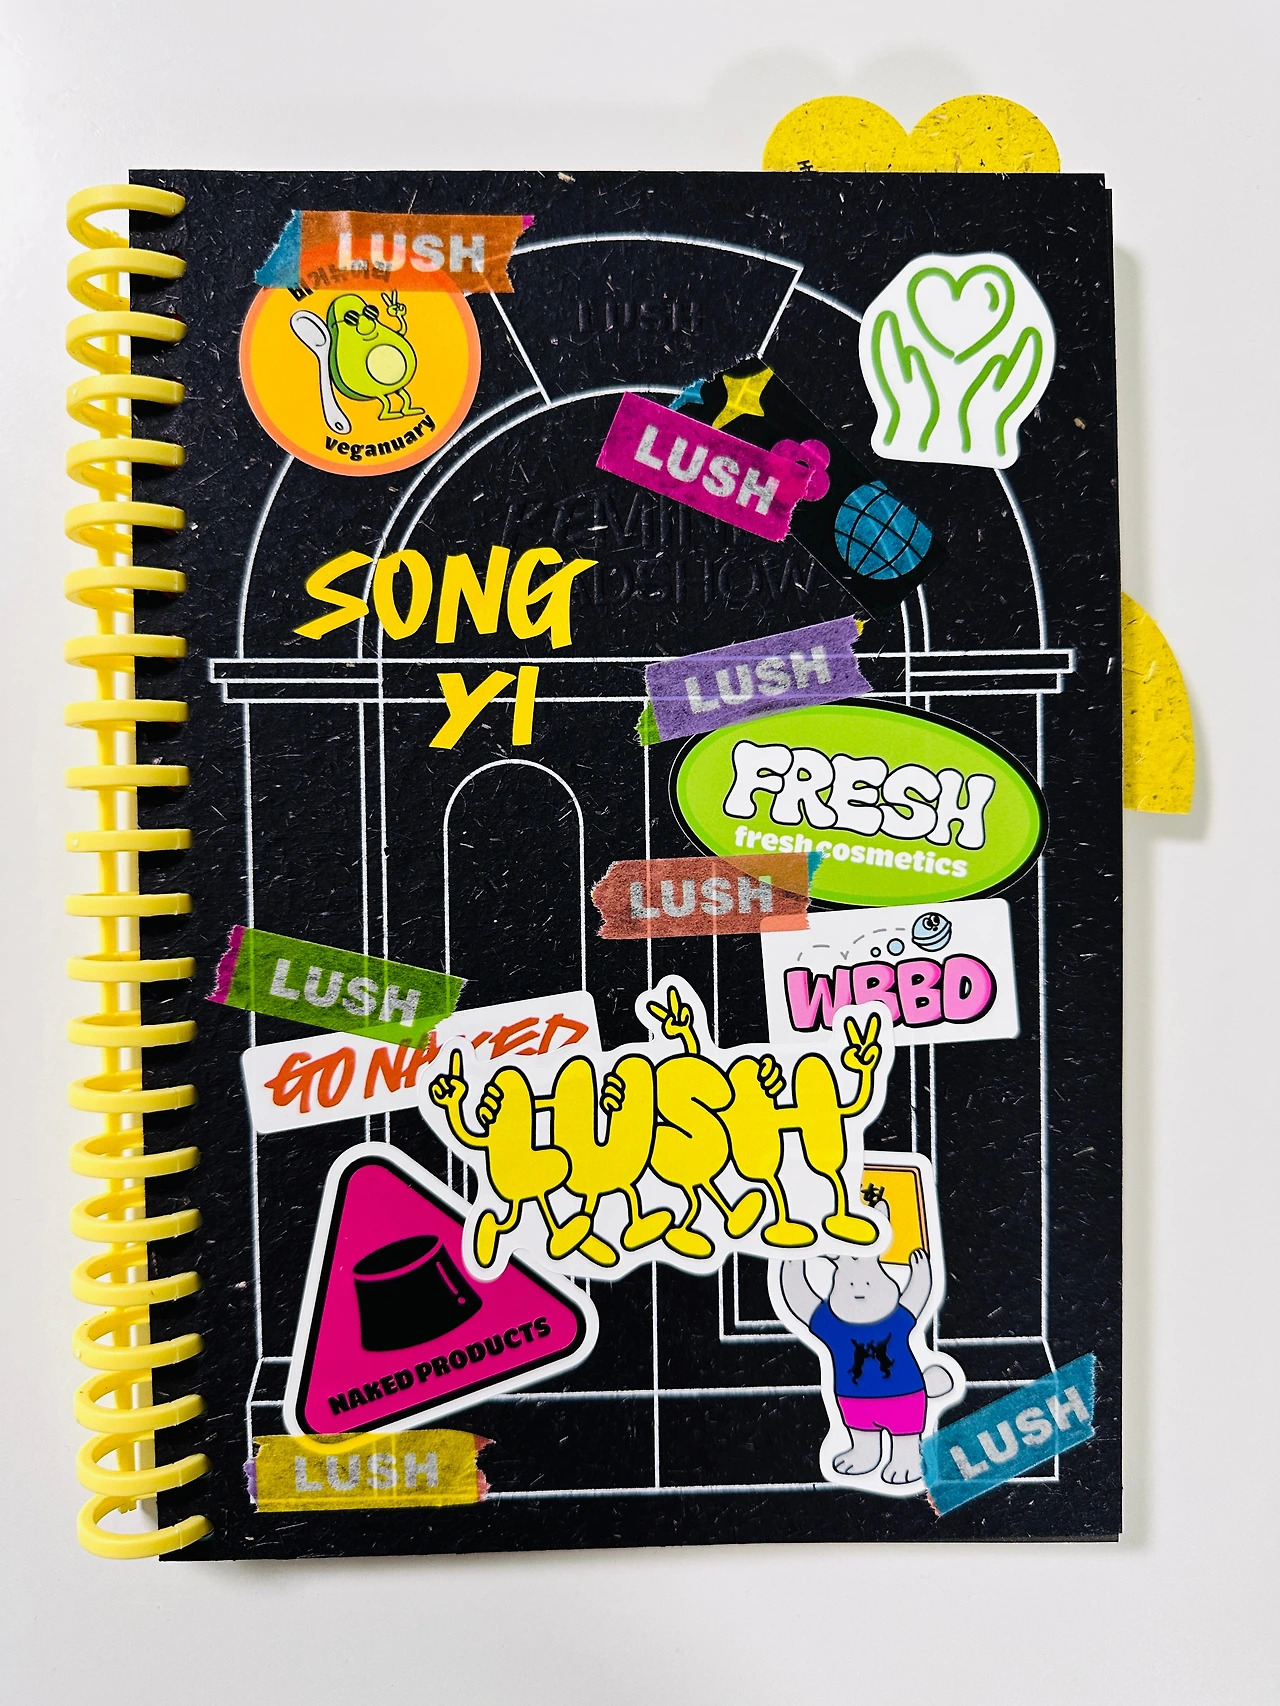 LUSH
비거뉴어리
veganuary
LUSH
LUSH
SONG
YI
LUSH
FRESH
fresh cosmetics
LUSH
WBBD
LUSH
GO NAKED
LUSH
NAKED PRODUCTS
LUSH
LUSH